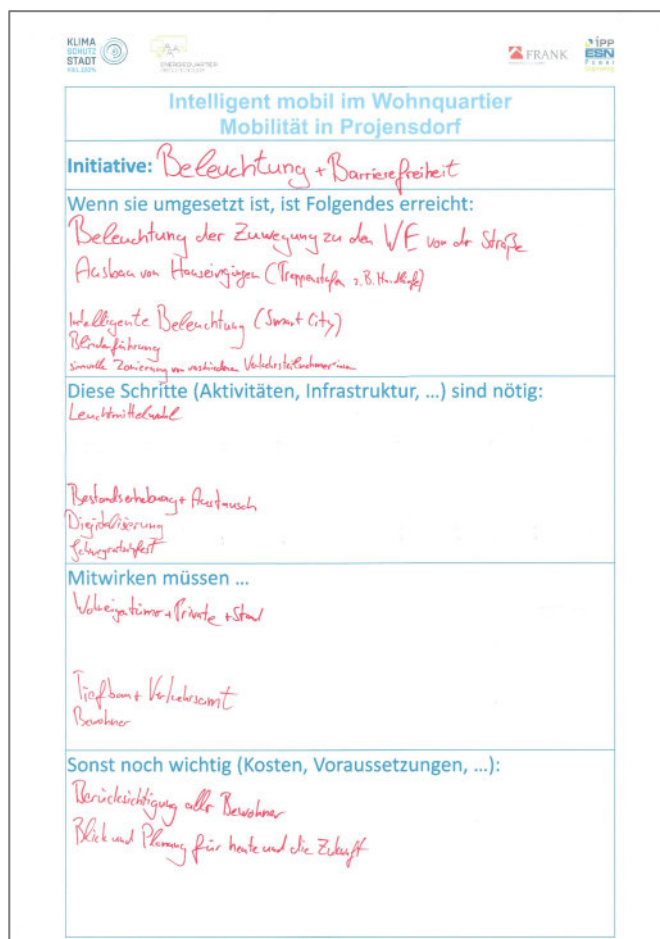 KLIMA
SCHUTZ
STADT
KIEL.2025
ENERGIEQUARTIER
FRANK
IPP
ESN
Power
Intelligent mobil im Wohnquartier
Mobilität in Projensdorf
Initiative: Beleuchtung + Barrierefreiheit
Wenn sie umgesetzt ist, ist Folgendes erreicht:
Beleuchtung der Zuwegung zu den WE von der Straße
Ausbau von Hauseingängen (Treppenstufen z.B. Handläufe)
Intelligente Beleuchtung (Smart City)
Blindenführung
sinnvolle Zonierung von verschiedenen Verkehrsteilnehmer*innen
Diese Schritte (Aktivitäten, Infrastruktur, …) sind nötig:
Leuchtmittelwahl
Bestandserhebung + Austausch
Digitalisierung
Mitwirken müssen …
+ Private +
Tiefbau + Verkehrsamt
Bewohner
Sonst noch wichtig (Kosten, Voraussetzungen, …):
Berücksichtigung aller Bewohner
Blick und Planung für heute und die Zukunft